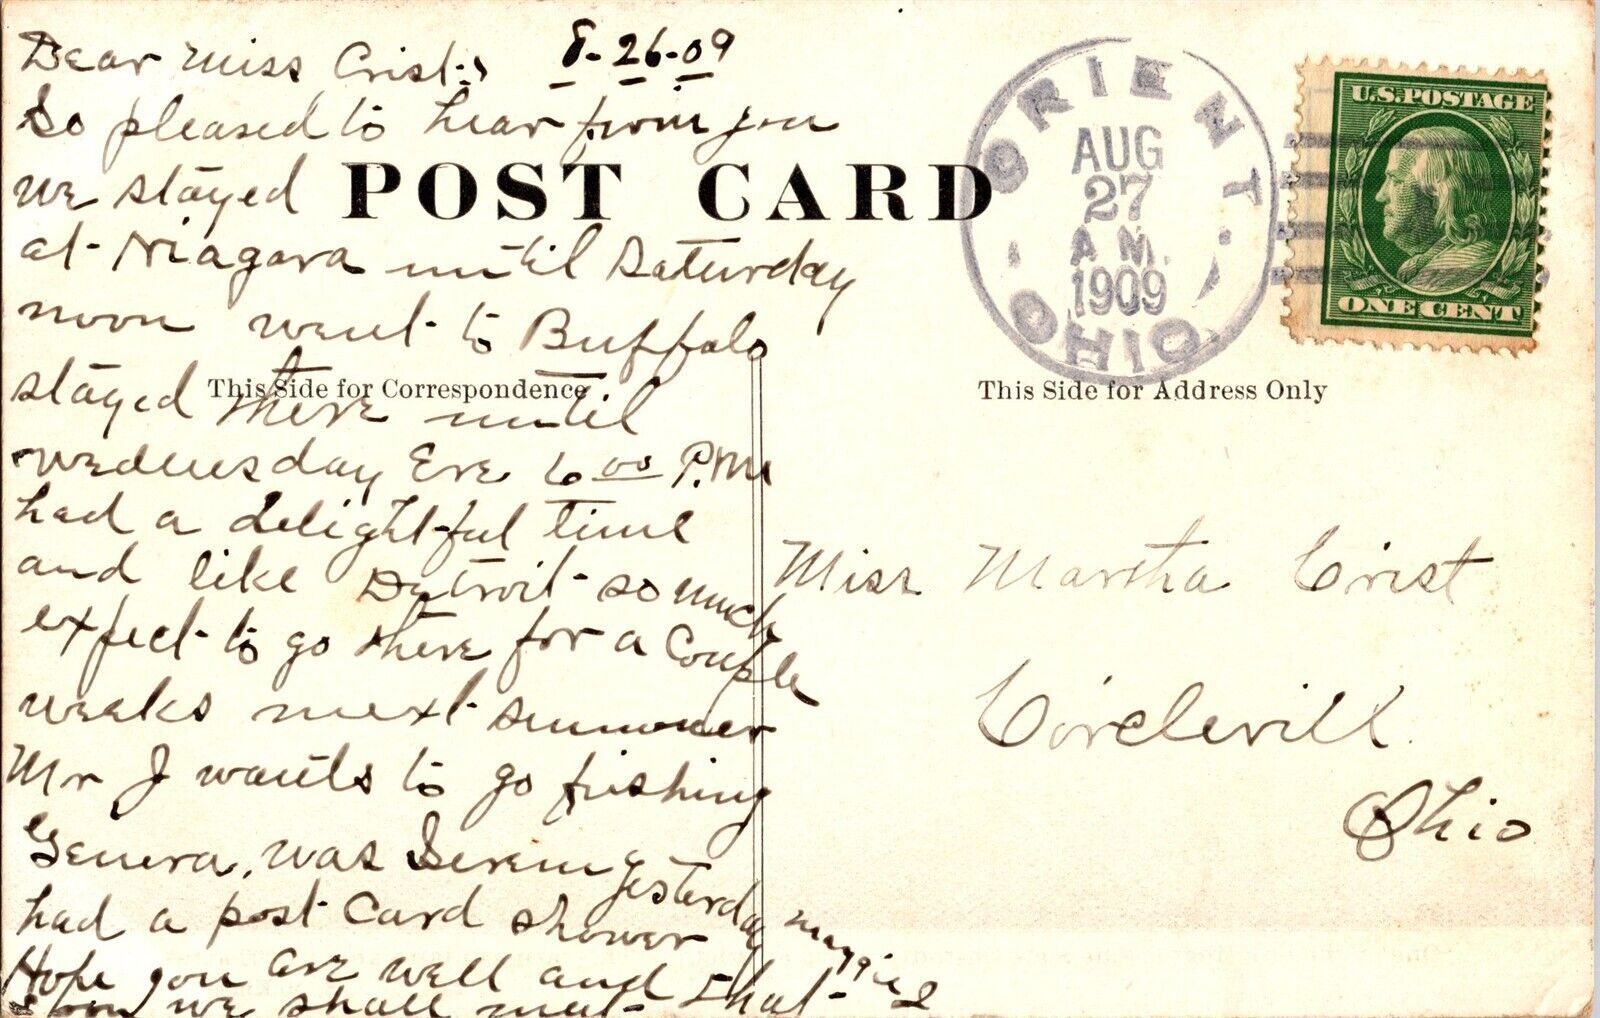 Dear Miss Crist, 8-26-09
So pleased to hear from you
we stayed
POST CARD
at Niagara until Saturday
noon went to Buffalo
stayed there until
Wednesday Eve 6 00 P.M.
had a delightful time
and like Detroit so much
expect to go there for a couple
weeks next summer
Mr J wants to go fishing
Geneva, was Seven yesterday
had a post card shower
Hope you are well and that
we shall meet
This Side for Correspondence
ORIENT
AUG
27
A M.
1909
OHIO
U.S. POSTAGE
ONE CENT
This Side for Address Only
Miss Martha Crist
Circlevill
Ohio